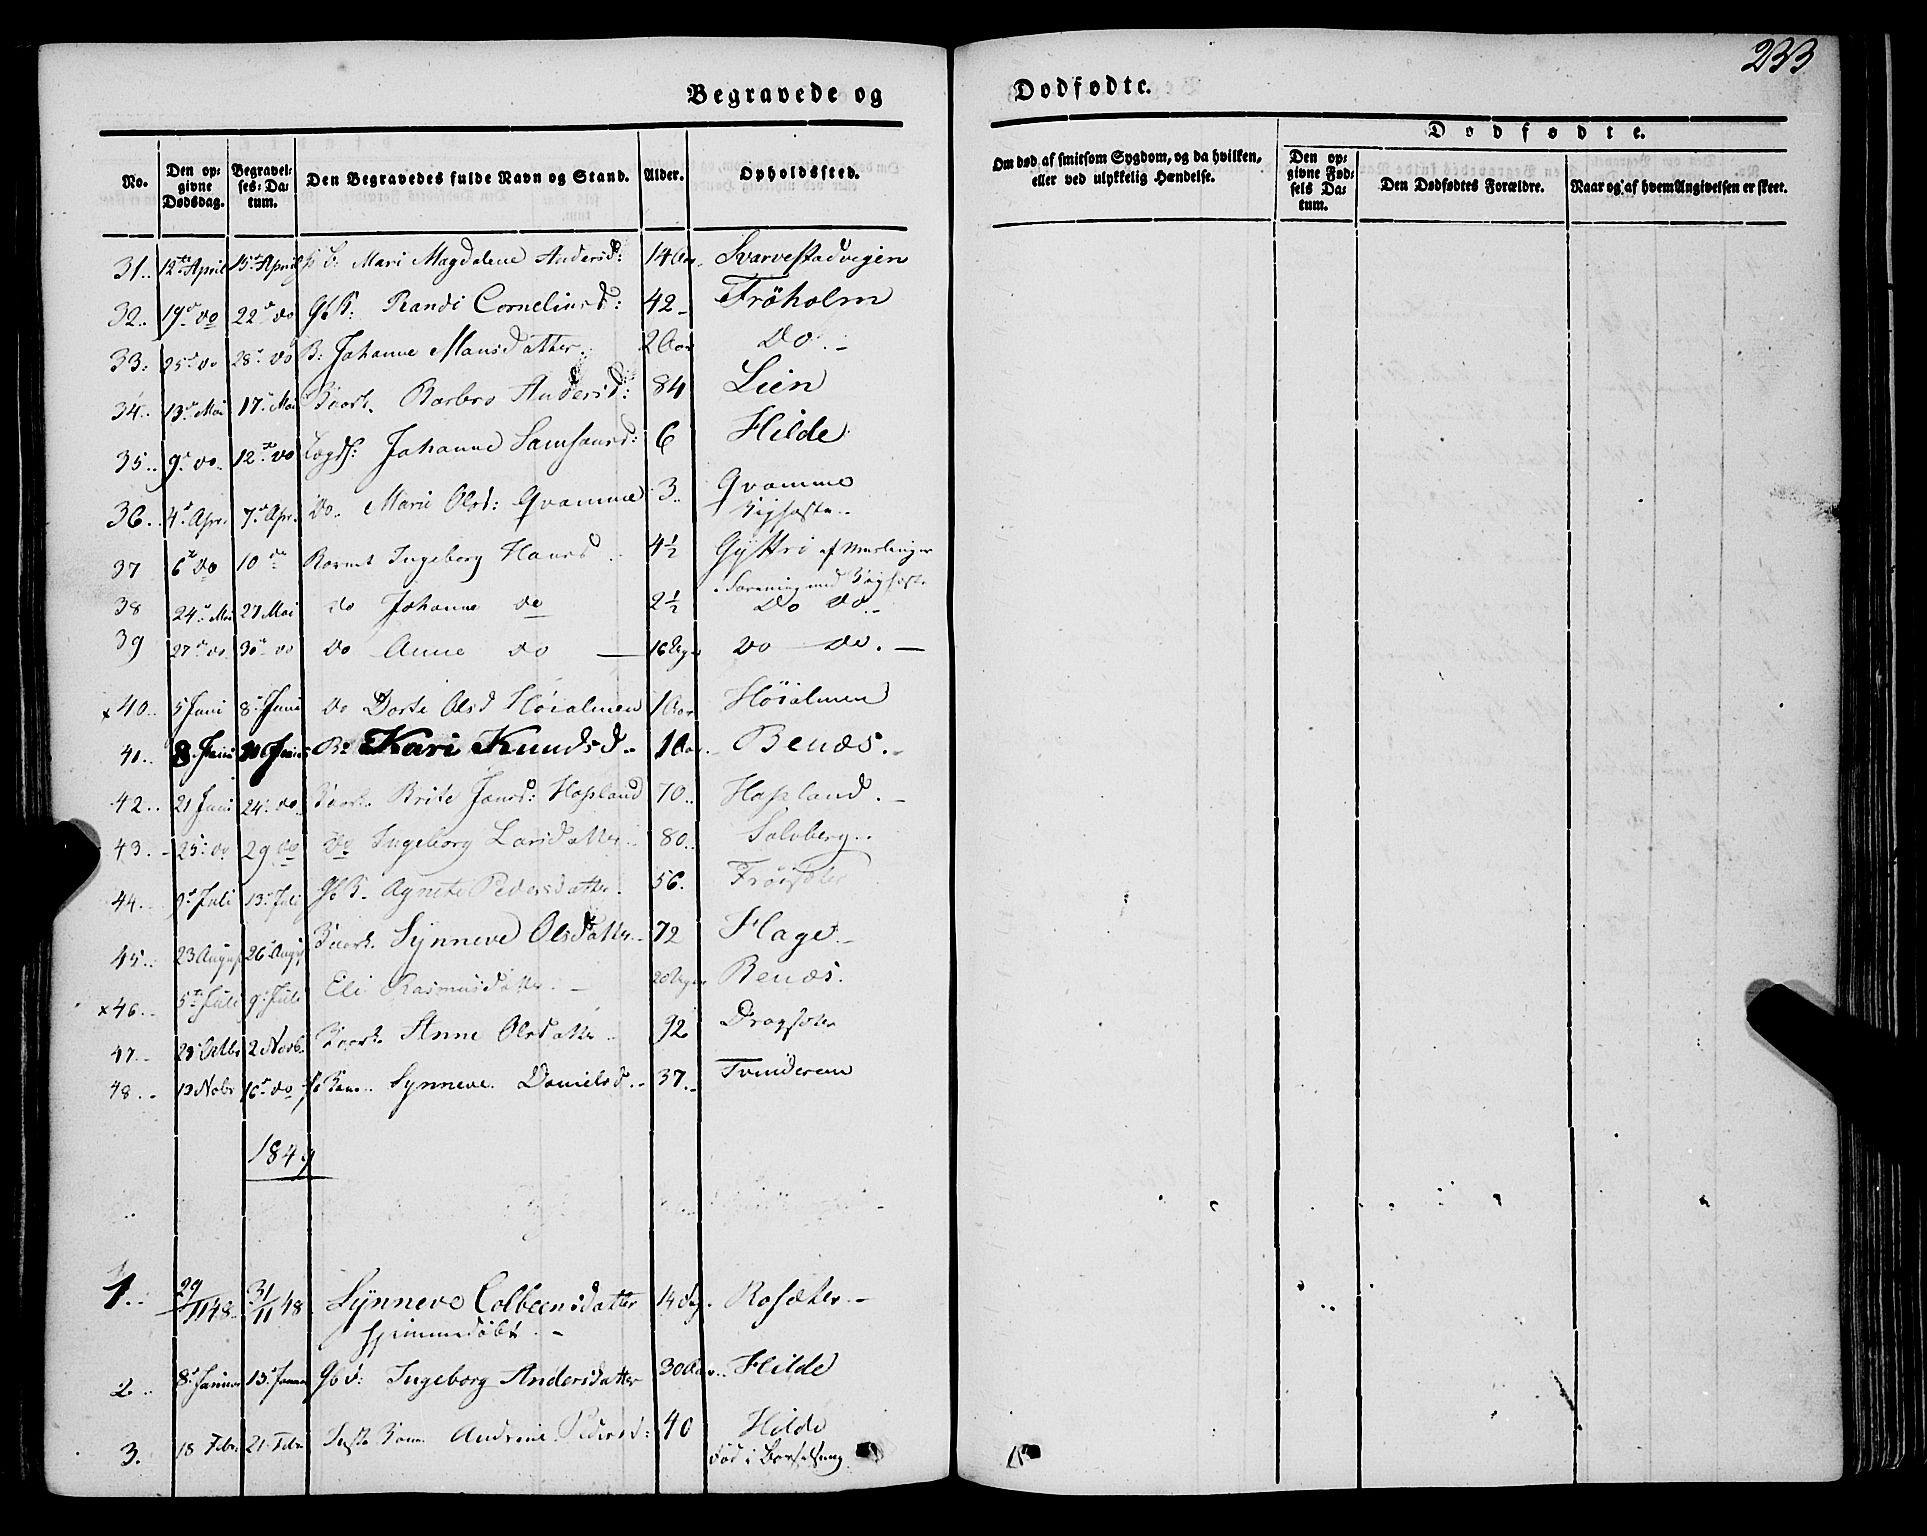 233
Begravede og
Dødfødte.
No.
Den opgivne Dødsdag.
Begravelses-Datum.
Den Begravedes fulde Navn og Stand.
Alder.
Opholdssted.
Om død af smitsom Sygdom, og da hvilken,
eller ved ulykkelig Hændelse.
Dødfødte.
Den opgivne Fødsels Datum.
Den Dødfødtes Forældre.
Naar og af hvem Angivelsen er skeet.
31.. 12te April 15de April Mari Magdalene Andersd: 14 Aar Svarvestadvigen
32.. 19de do 22de do Randi Corneliusd: 42 Fröholm
33: 25de do 28de do B: Johanne Monsdatter. 2 Aar Do.
34.. 13de Mai 17de Mai Barbro Andersd: 84 Lien
35.. 9de do 12te do Johanne Samsonsd: 6 Hilde
36.. 4de Apr. 7de Apr. Do. Mari Olsd: Qvamme 3.. Qvamme
37 6te do 10de Barnet Ingeborg Hansd 4½ Gyttri af
38 24de Mai 27 Mai do Johanne do 2½ Do Do.
39 27de do 30te do do Anne do 16 Uger do do.
x 40.. 5 Juni 8de Juni do Dorte Olsd Höialmen 1 Aar Höialmen
41.. 8 Juni Juni B: Kari Knudsd 1 Aar. Benæs.
42.. 21 Juni 24de do Brite Jansd: Hopland 70.. Hopland.
43. 25de do 29 do do Ingeborg Larsdatter 80.. Solvberg..
44.. 9de Juli 13de Juli Agnete Pedersdatter. 56. Fröisæter
45.. 23 August 26 Augst Synneve Olsdatter 72 Hage
x 46.. 5te Juli 9de Juli Eli Rasmusdatter. 20 Uger Benæs.
47.. 29 Octbr 2 Novb. Anne Olsdatter 92 Dragsæter
48.. 12 Nobr 16de do Synneve Danielsd. 37. Tvinderem
1849
1.. 29/11 48 31/11 48 Synneve Colbeensdatter 14 Dag. Rosæter
hjemmedöbt.
2.. 8de Januar 13de Januar Ingeborg Andersdatter 30 Aar.. Hilde
3. 18 Febr. 21 Febr Andrine Pedersd: 40 Hilde
död i